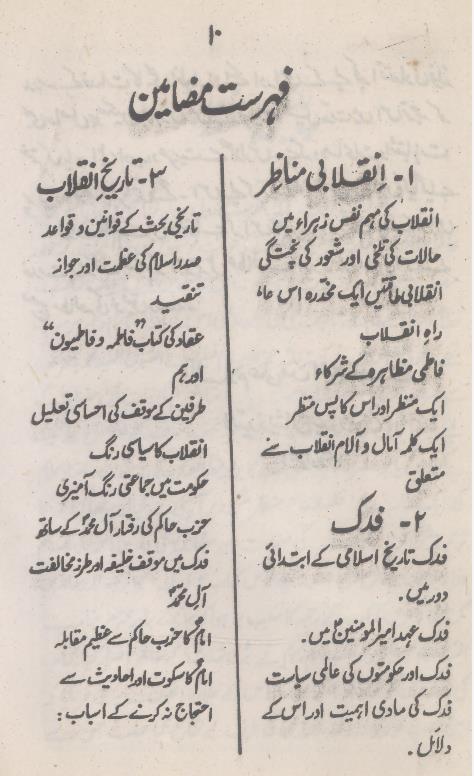 ۱۰
فہرست مضامین
۱- اِنقلابی مناظر
انقلاب کی مہم نفس زہراء میں
حالات کی تلخی اور شعور کی پختگی
انقلابی طاقتیں ایک مخدّرہ اس عام
راہِ انقلاب
فاطمی مظاہرہ کے شرکاء
ایک منظر اور اس کا پس منظر
ایک کلمہ آمال و آلام انقلاب سے
متعلق
۲- فدک
فدک تاریخ اسلامی کے ابتدائی
دور میں۔
فدک عہد امیر المومنینؑ میں۔
فدک اور حکومتوں کی عالمی سیاست
فدک کی مادی اہمیت اور اس کے
دلائل۔
۳- تاریخِ انقلاب
تاریخی بحث کے قوانین و قواعد
صدر اسلام کی عظمت اور جواز
تنقید
عقاد کی کتاب "فاطمہ و فاطمیون"
اور ہم
طرفین کے موقف کی احساسی تعلیل
انقلاب کا سیاسی رنگ
حکومت میں جماعتی رنگ آمیزی
حزب حاکم کی رفتار آل محمدؐ کے ساتھ
فدک میں موقف خلیفہ اور طرز مخالفت
آل محمدؐ
امامؑ کا حزب حاکم سے عظیم مقابلہ
امامؑ کا سکوت اور احادیث سے
احتجاج نہ کرنے کے اسباب :